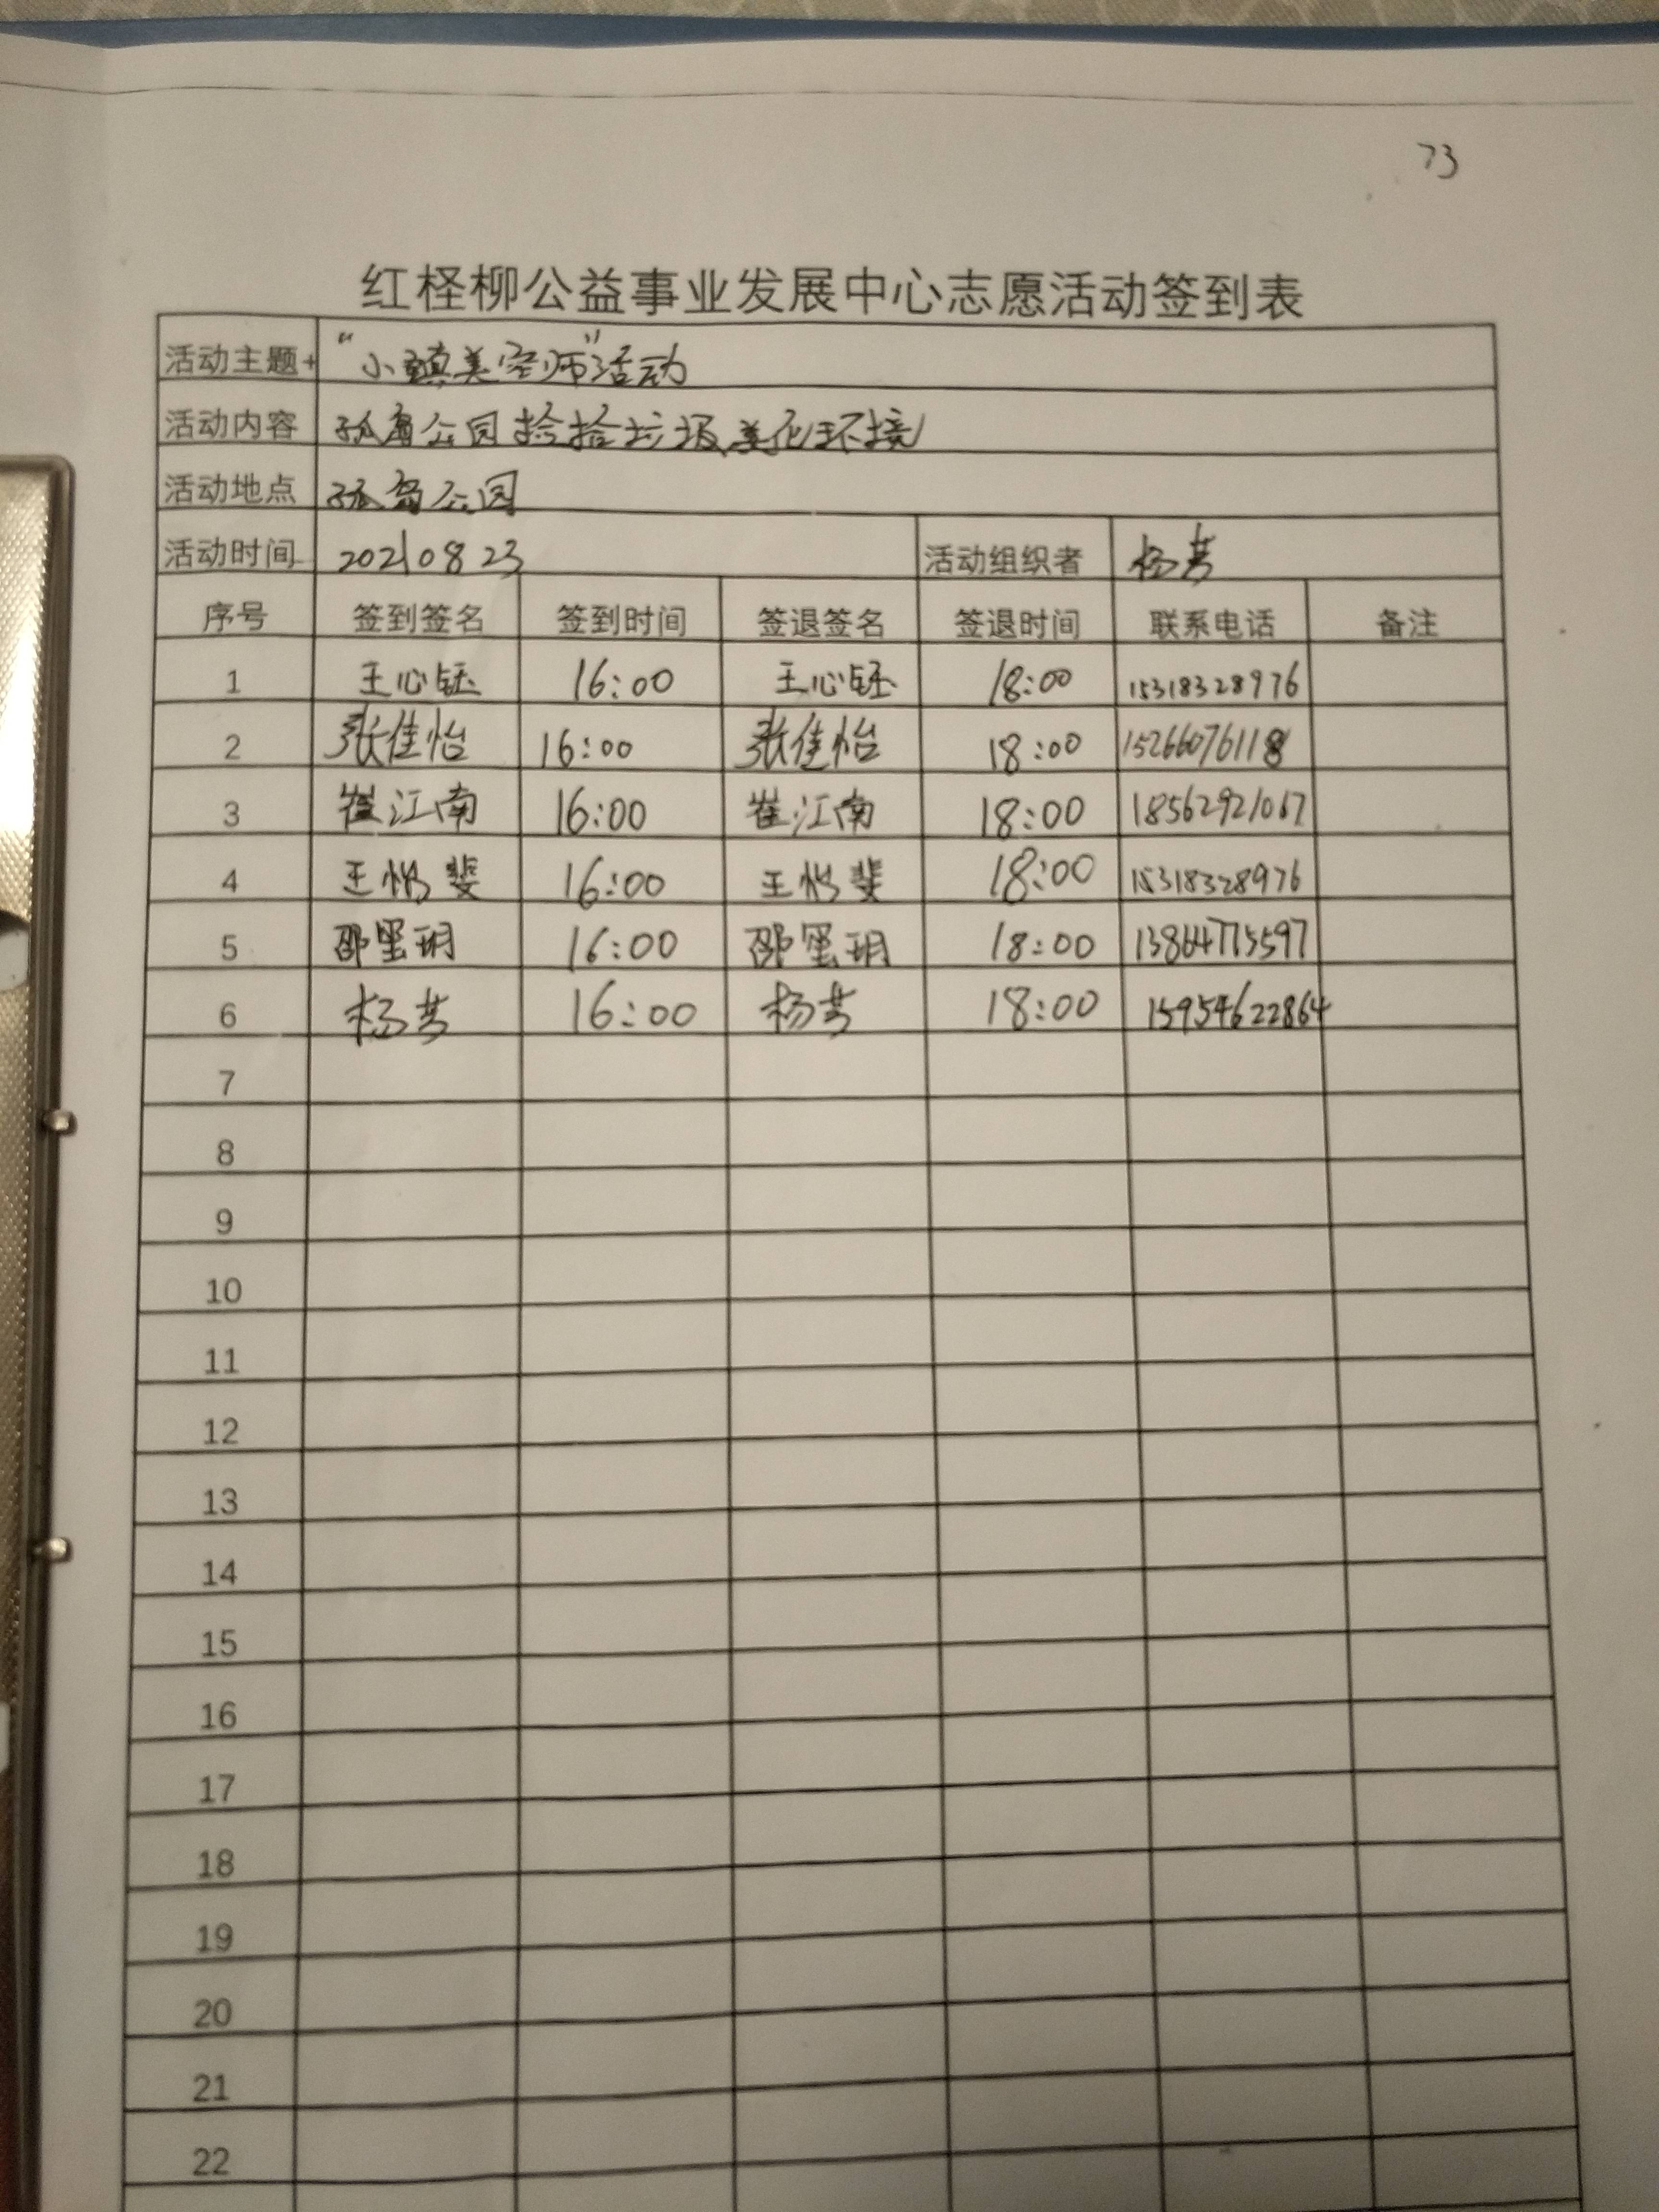 73
红柽柳公益事业发展中心志愿活动签到表
活动主题+ "小镇美容师"活动
活动内容 孤岛公园捡拾垃圾,美化环境
活动地点 孤岛公园
活动时间 20210823 活动组织者 杨芳
序号 签到签名 签到时间 签退签名 签退时间 联系电话 备注
1 王心钰 16:00 王心钰 18:00 15318328976
2 张佳怡 16:00 张佳怡 18:00 15266076118
3 崔江南 16:00 崔江南 18:00 18562921067
4 王怡斐 16:00 王怡斐 18:00 15318328976
5 邵玥 16:00 邵玥 18:00 13864775597
6 杨芳 16:00 杨芳 18:00 15954622864
7
8
9
10
11
12
13
14
15
16
17
18
19
20
21
22